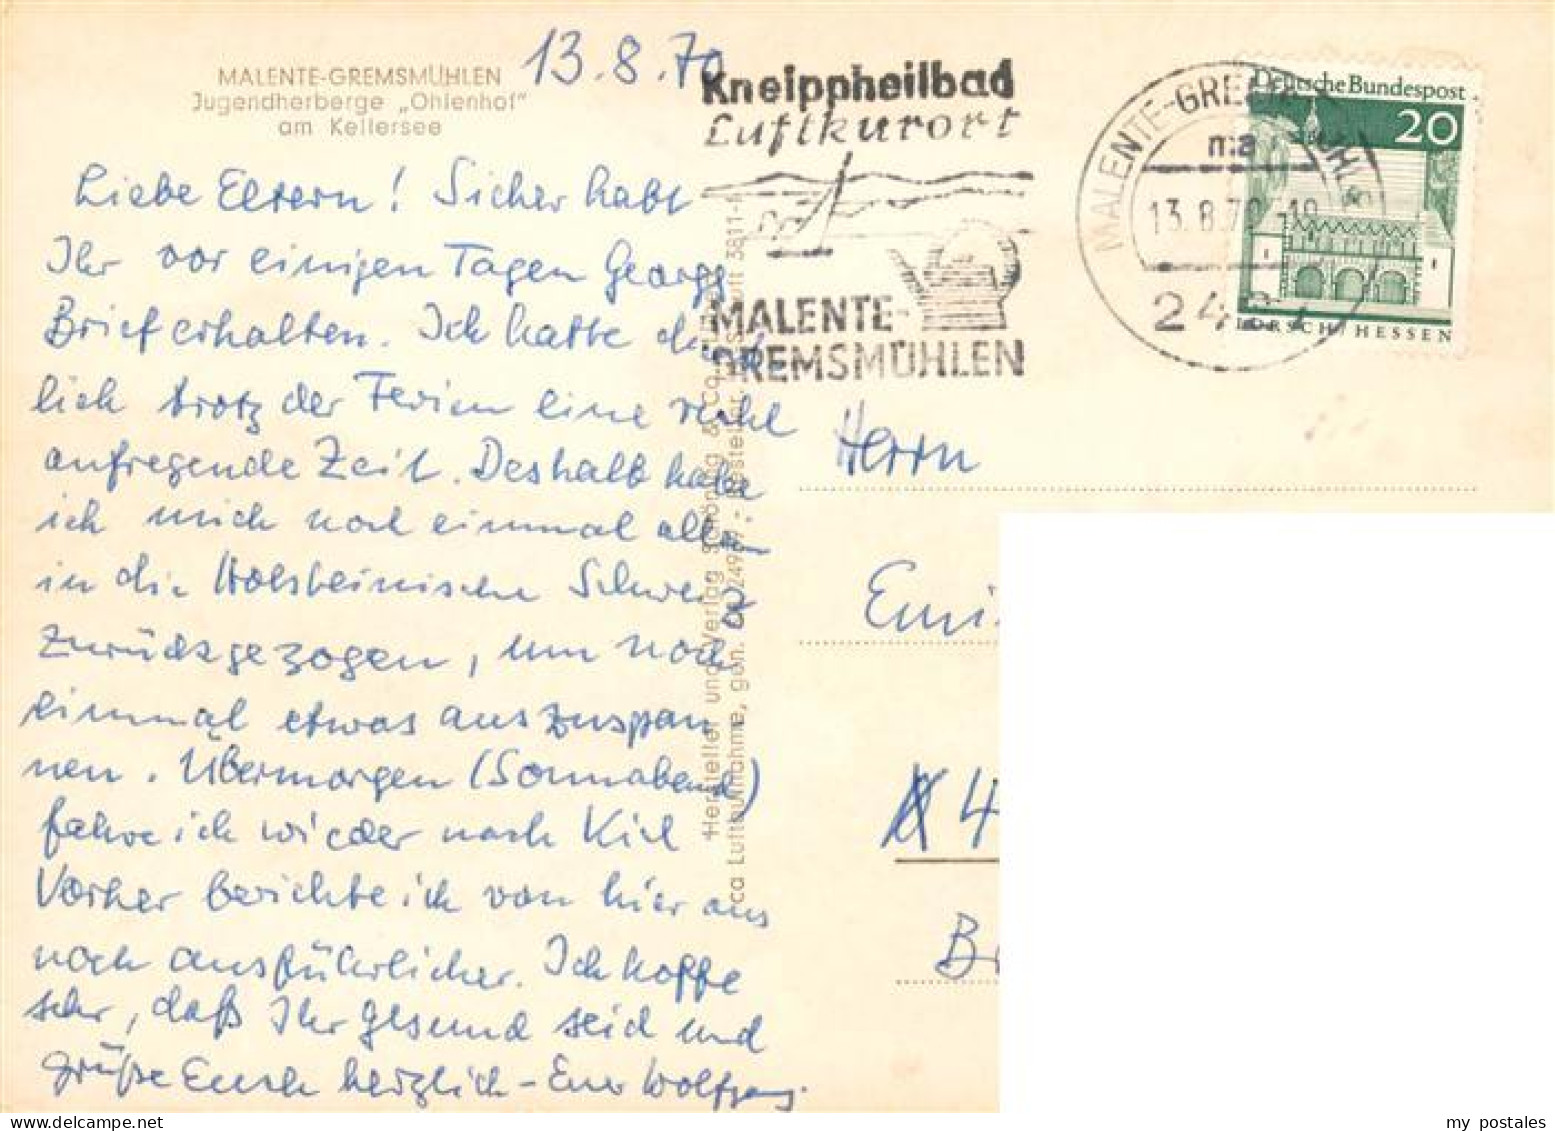 MALENTE-GREMSMÜHLEN
Jugendherberge „Ohlenhof"
am Kellersee
13.8.70
Liebe Eltern! Sicher habt
Ihr vor einigen Tagen Georgs
Brief erhalten. Ich hatte
lich trotz der Ferien eine recht
aufregende Zeit. Deshalb habe
ich mich noch einmal allein
in die Holsteinische Schweiz
zurückgezogen, um noch
einmal etwas auszuspan
nen. Übermorgen (Sonnabend)
fahre ich wieder nach Kiel
Vorher berichte ich von hier aus
noch ausführlicher. Ich hoffe
sehr, daß Ihr gesund seid und
grüße Euch herzlich - Euer Wolfgang.
Hersteller und Verlag Schöning & Co
ca Luftaufnahme, gen. - Besteller 3811-
Kneippheilbad
Luftkurort
MALENTE-
GREMSMÜHLEN
MALENTE-GREMSMÜHLEN
ma
13.8.70-18
242
Deutsche Bundespost
20
LORSCH / HESSEN
Herrn
Emi
4
B
my postales